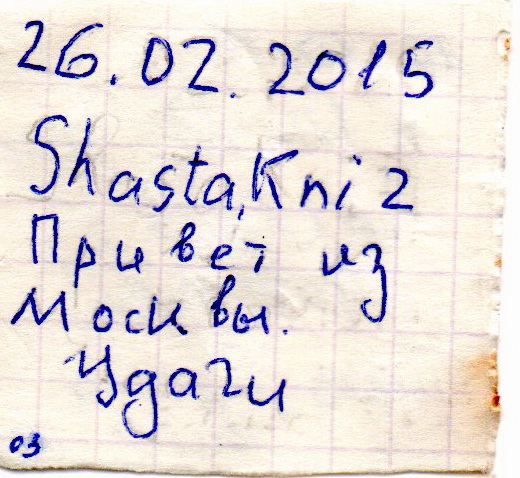 26.02.2015
Shasta,Kniz
Привет из
Москвы.
Удачи
03